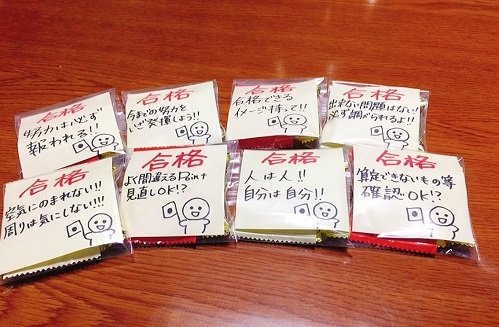 合格
努力は必ず
報われる!!
合格
今までの努力を
いざ発揮しよう!!
合格
合格できる
イメージ持って!!
合格
出来ない問題はない!
必ず調べられるよ!!
合格
空気にのまれない!!!
周りは気にしない!!!
合格
よく間違えるPoint
見直しOK!?
合格
人は人!!
自分は自分!!
合格
算定できないもの等
確認OK!?